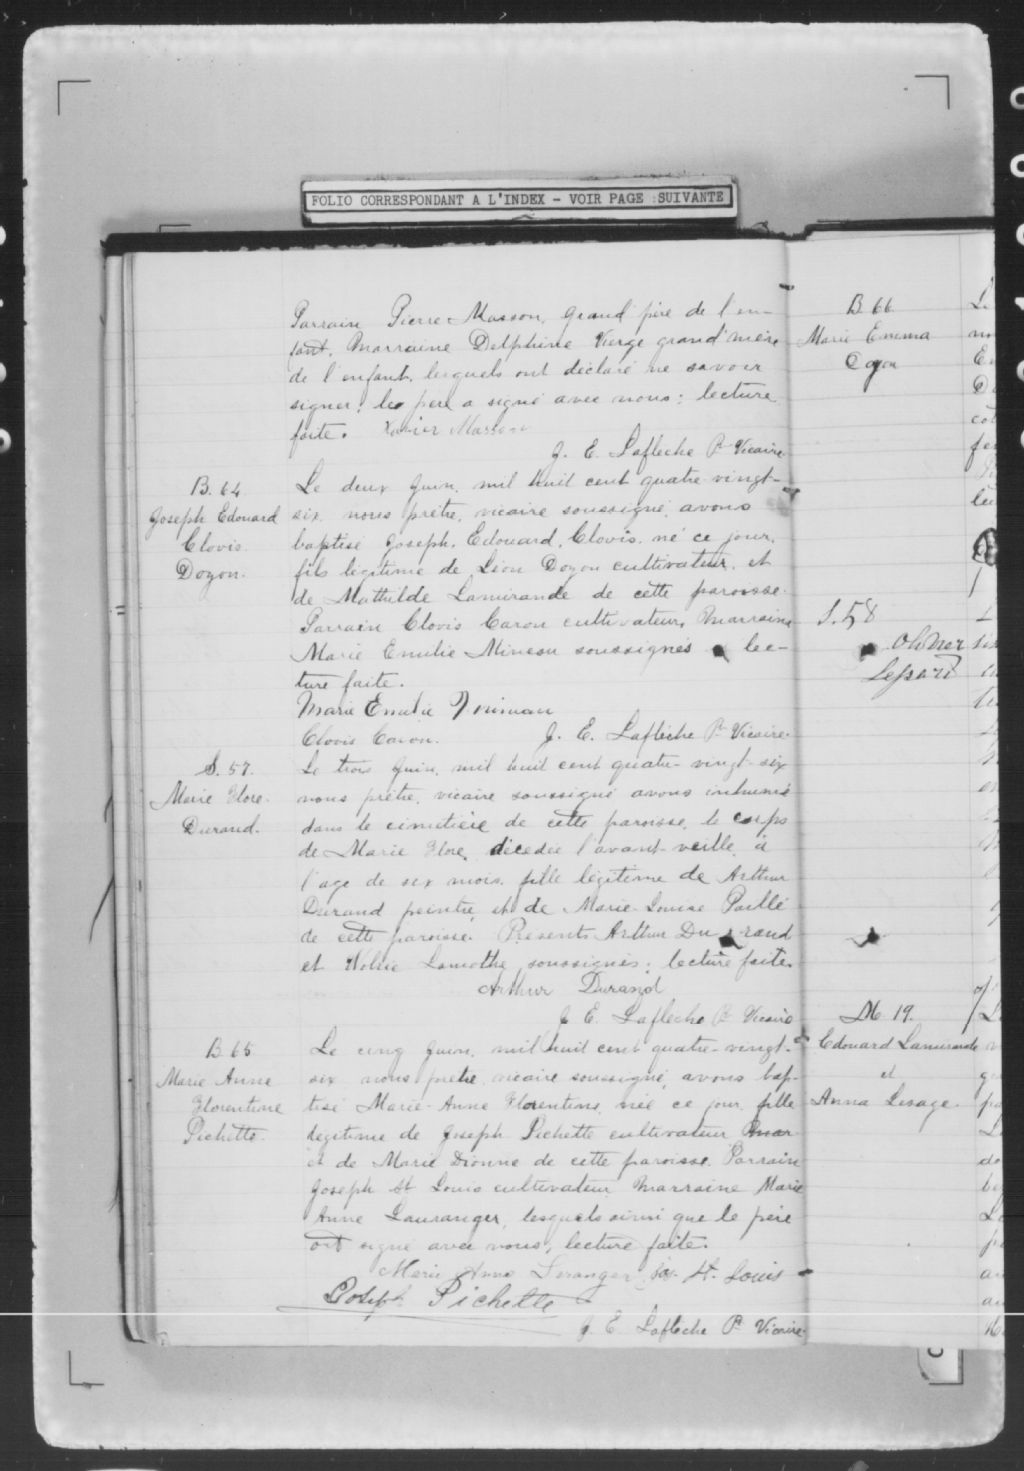 FOLIO CORRESPONDANT A L'INDEX - VOIR PAGE SUIVANTE
Parrain Pierre Masson, grand' père de l'en-
fant, marraine Delphine Vierge grand'mère
de l'enfant, lesquels ont déclaré ne savoir
signer; le père a signé avec nous; lecture
faite. Xavier Masson
J. E. Laflèche Ptre Vicaire
B. 64
Joseph Edouard
Clovis
Doyon.
Le deux Juin, mil huit cent quatre-vingt-
six, nous prêtre, vicaire soussigné, avons
baptisé Joseph, Edouard, Clovis, né ce jour,
fils légitime de Léon Doyon cultivateur, et
de Mathilde Lamirande de cette paroisse.
Parrain Clovis Caron cultivateur, marraine
Marie Emilie Mineau soussignés lec-
ture faite.
Marie Emilie
Clovis Caron. J. E. Laflèche Ptre Vicaire.
S. 57.
Marie Flore
Durand.
Le trois Juin, mil huit cent quatre-vingt-six
nous prêtre, vicaire soussigné avons inhumé
dans le cimetière de cette paroisse, le corps
de Marie Flore, décédée l'avant-veille, à
l'age de six mois, fille légitime de Arthur
Durand peintre, et de Marie-Louise Paillé
de cette paroisse. Présents Arthur Durand
et Lamothe, soussignés; lecture faite.
Arthur Durand
J. E. Laflèche Ptre Vicaire
B. 65
Marie Anne
Florentine
Pichette.
Le cinq Juin, mil huit cent quatre-vingt-
six nous prêtre vicaire soussigné, avons bap-
tisé Marie-Anne Florentine, née ce jour, fille
légitime de Joseph Pichette cultivateur mar
et de Marie Dionne de cette paroisse. Parrain
Joseph St Louis cultivateur, marraine Marie
Anne Lauranger, lesquels ainsi que le père
ont signé avec nous, lecture faite.
Marie Anne Loranger Jos. St. Louis
Joseph Pichette
J. E. Laflèche Ptre Vicaire.
B 66
Marie Emma
S. 58
Lessard
M. 19.
Edouard Lamirande
et
Anna Lesage.